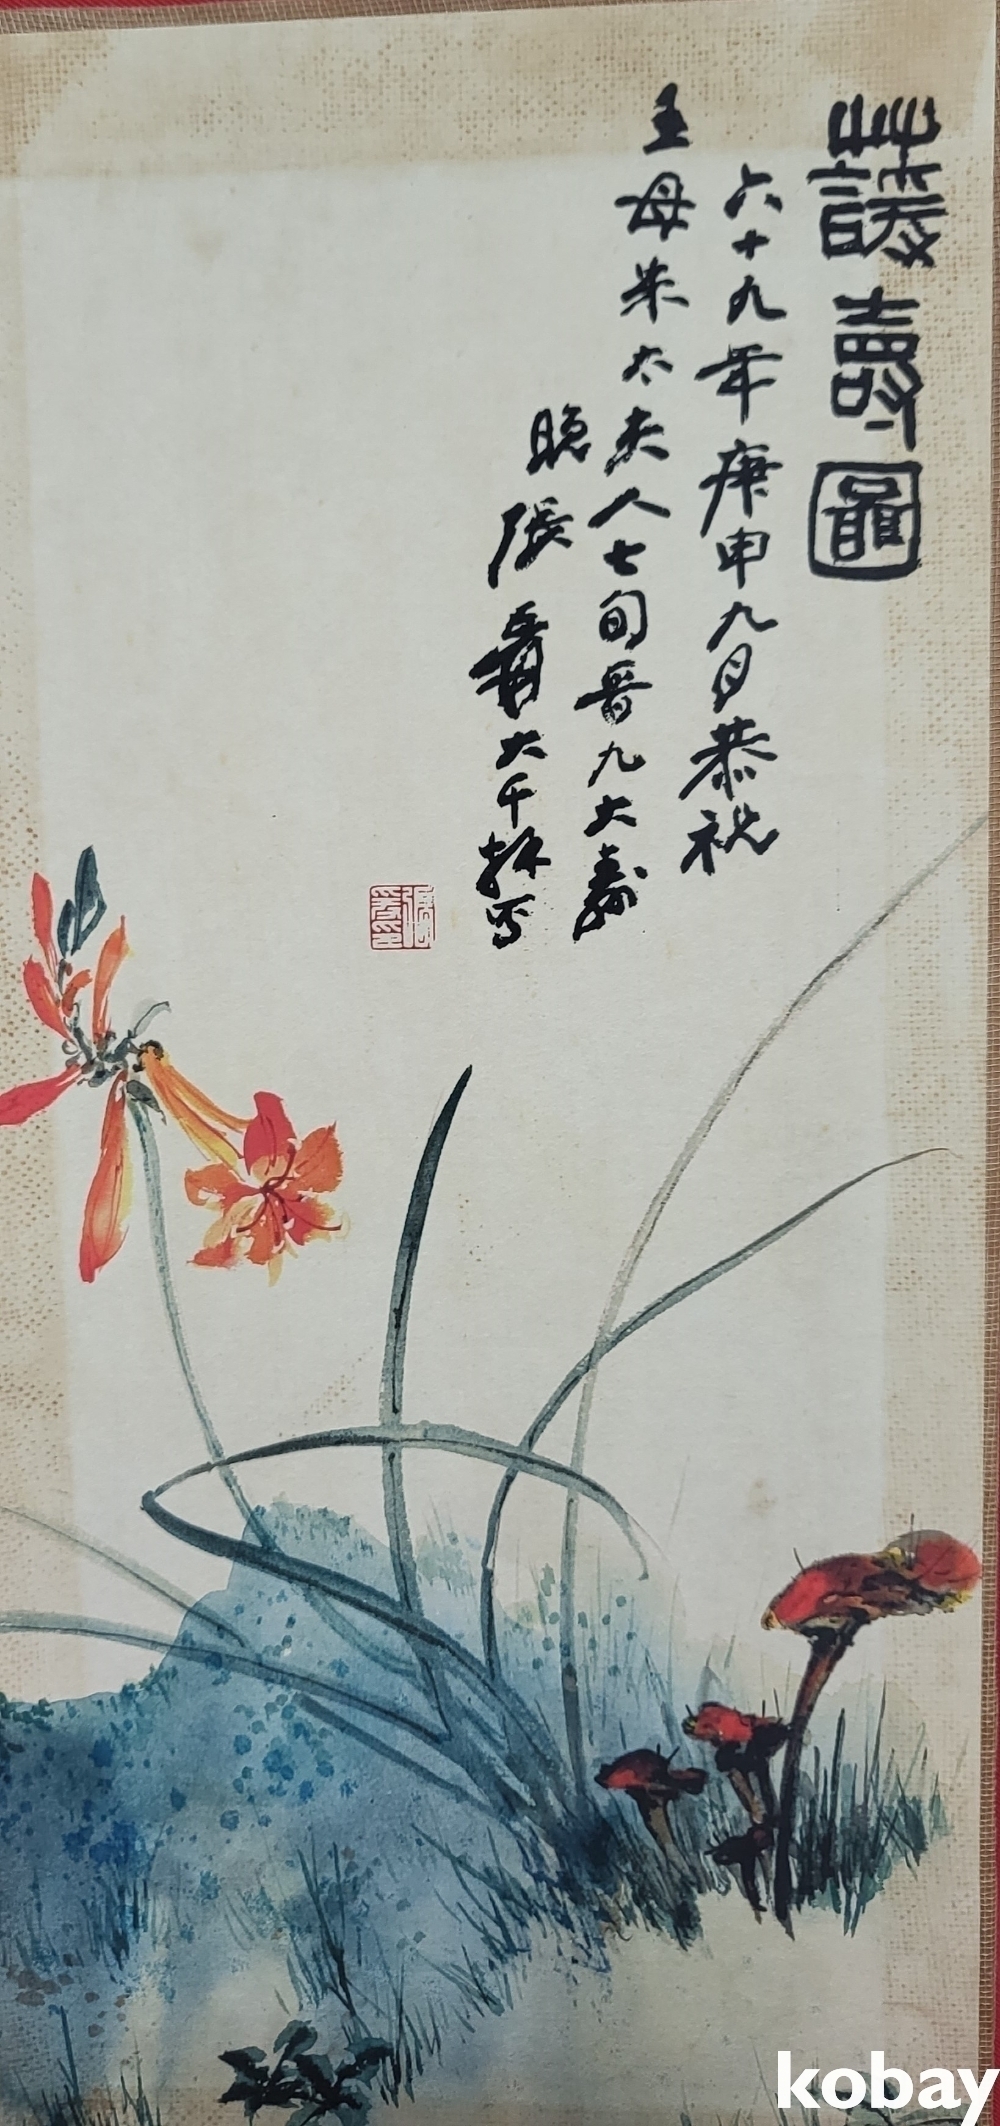 蘐壽圖
六十九年庚申九月恭祝
王母朱太夫人七旬晋九大壽
晚張爰大千拜写
張爰印
kobay